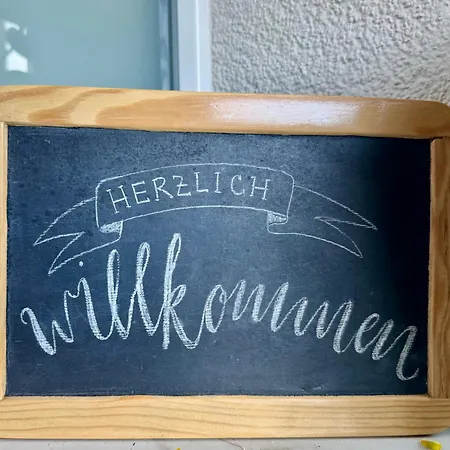 HERZLICH
willkommen